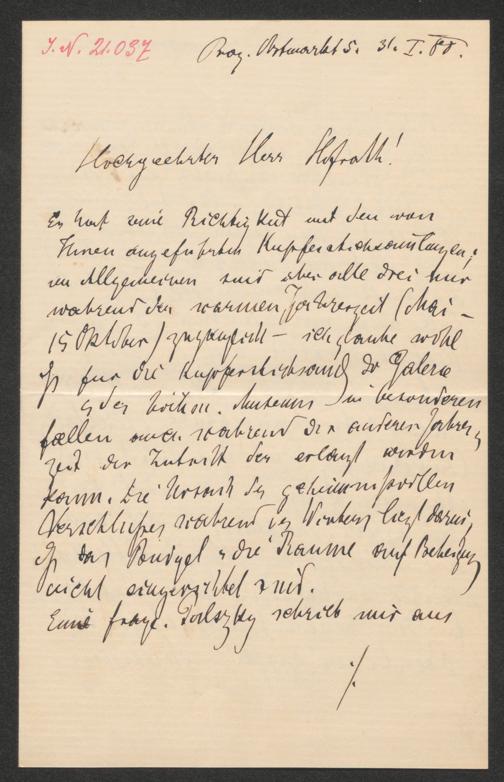 J. N. 21.037
Prag. Obstmarkt 5. 31. I. 88.
Hochgeehrter Herr Hofrath!
Es hat seine Richtigkeit mit den von
Ihnen angeführten Kupferstichsamlungen;
im Allgemeinen sind aber alle drei nur
während der warmen Jahreszeit (Mai –
15 Oktober) zugänglich – ich glaube wohl
für die Kupferstichsamlg der Galerie
des Museums in besonderen
fällen auch während der anderen Jahres
zeit der Zutritt erlangt werden
kann. Die Ursache des geheimnisvollen
Verschlusses während des Winters liegt darin,
das die Räume auf Beheizung
nicht eingerichtet sind.
Eine frage. schrieb mir aus
./.